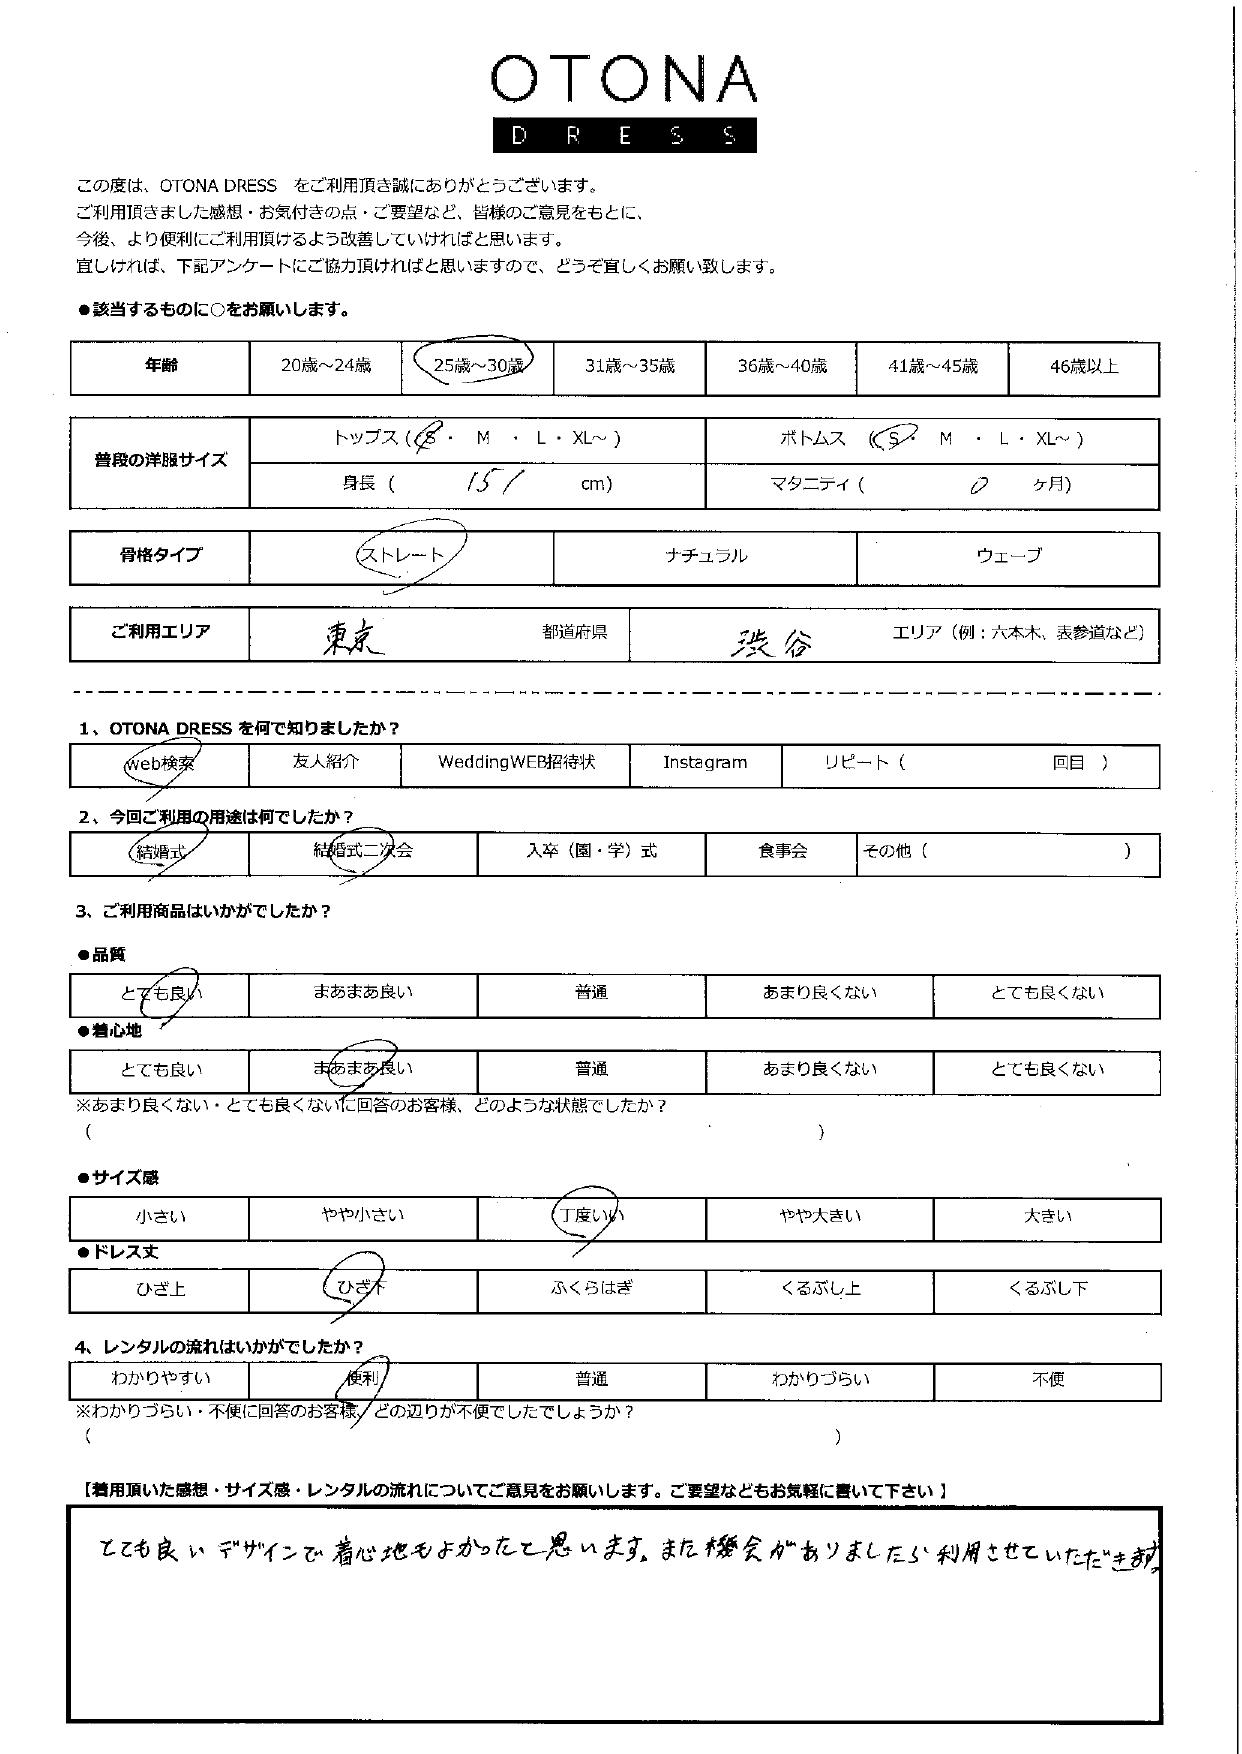 OTONA
DRESS
この度は、OTONA DRESS をご利用頂き誠にありがとうございます。
ご利用頂きました感想・お気付きの点・ご要望など、皆様のご意見をもとに、
今後、より便利にご利用頂けるよう改善していければと思います。
宜しければ、下記アンケートにご協力頂ければと思いますので、どうぞ宜しくお願い致します。
●該当するものに○をお願いします。
年齢 20歳～24歳 25歳～30歳 31歳～35歳 36歳～40歳 41歳～45歳 46歳以上
普段の洋服サイズ トップス (S・ M ・ L・XL～) ボトムス (S・ M ・ L・XL～)
身長 ( 151 cm) マタニティ ( 0 ヶ月)
骨格タイプ ストレート ナチュラル ウェーブ
ご利用エリア 東京 都道府県 渋谷 エリア（例：六本木、表参道など）
1、OTONA DRESS を何で知りましたか？
web検索 友人紹介 WeddingWEB招待状 Instagram リピート（ 回目 ）
2、今回ご利用の用途は何でしたか？
結婚式 結婚式二次会 入卒（園・学）式 食事会 その他（ ）
3、ご利用商品はいかがでしたか？
●品質
とても良い まあまあ良い 普通 あまり良くない とても良くない
●着心地
とても良い まあまあ良い 普通 あまり良くない とても良くない
※あまり良くない・とても良くないに回答のお客様、どのような状態でしたか？
( )
●サイズ感
小さい やや小さい 丁度いい やや大きい 大きい
●ドレス丈
ひざ上 ひざ下 ふくらはぎ くるぶし上 くるぶし下
4、レンタルの流れはいかがでしたか？
わかりやすい 便利 普通 わかりづらい 不便
※わかりづらい・不便に回答のお客様、どの辺りが不便でしたでしょうか？
( )
【着用頂いた感想・サイズ感・レンタルの流れについてご意見をお願いします。ご要望などもお気軽に書いて下さい】
とても良いデザインで着心地もよかったと思います。また機会がありましたら利用させていただきます。